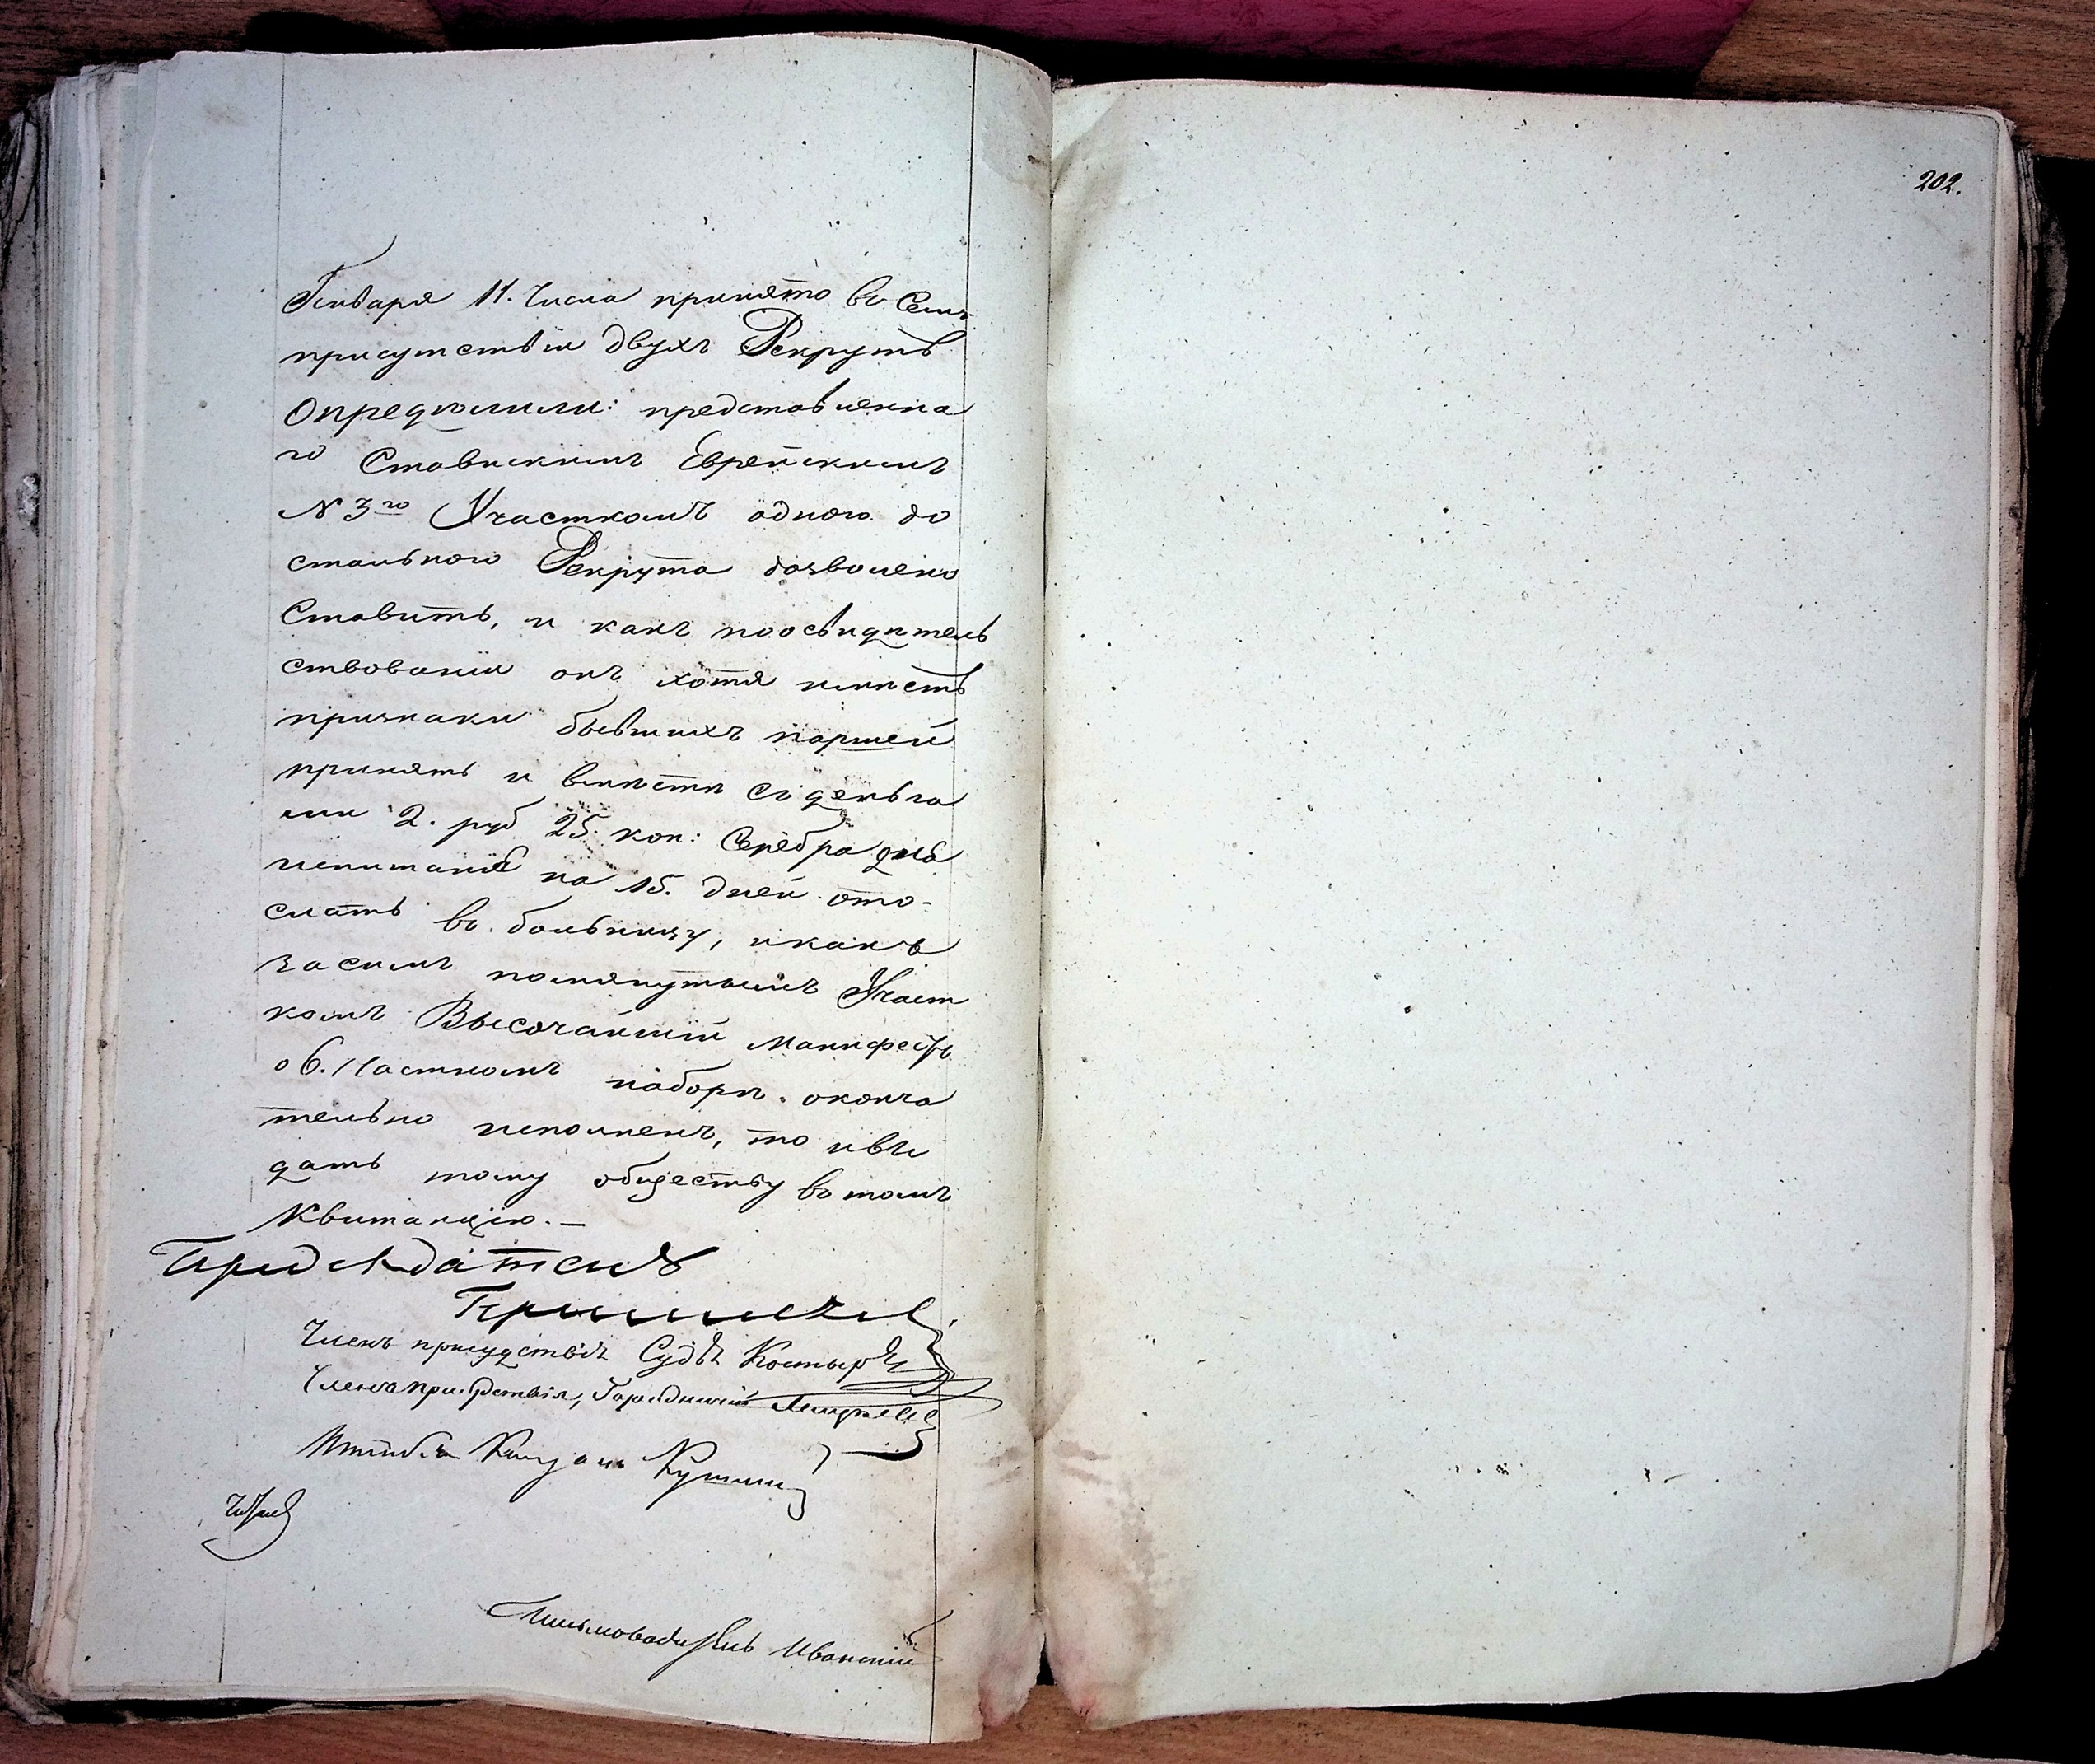 202.
Генваря 11. числа принято въ семъ
присутствіи двухъ Рекрутъ
Опредѣлили: представленна
го Ставискимъ Еврейскимъ
N 3го Участкомъ одного до
стального Рекрута дозволено
Ставить, и какъ поосвидѣтель
ствованіи онъ хотя имѣетъ
признаки бывшихъ паршей
принять и вмѣстѣ съ деньга
ми 2. руб 25. коп: Серебра для
испитанія на 15. дней ото-
слать въ больницу, и какъ
засимъ помянутымъ Участ
комъ Высочайшій Манифестъ
об. Частномъ наборѣ оконча
тельно исполненъ, то и вы
дать тому обществу въ томъ
Квитанцію. —
Предсѣдатель
Членъ присудствія Судья
Членъ присудствія, Городничій
Письмоводитель